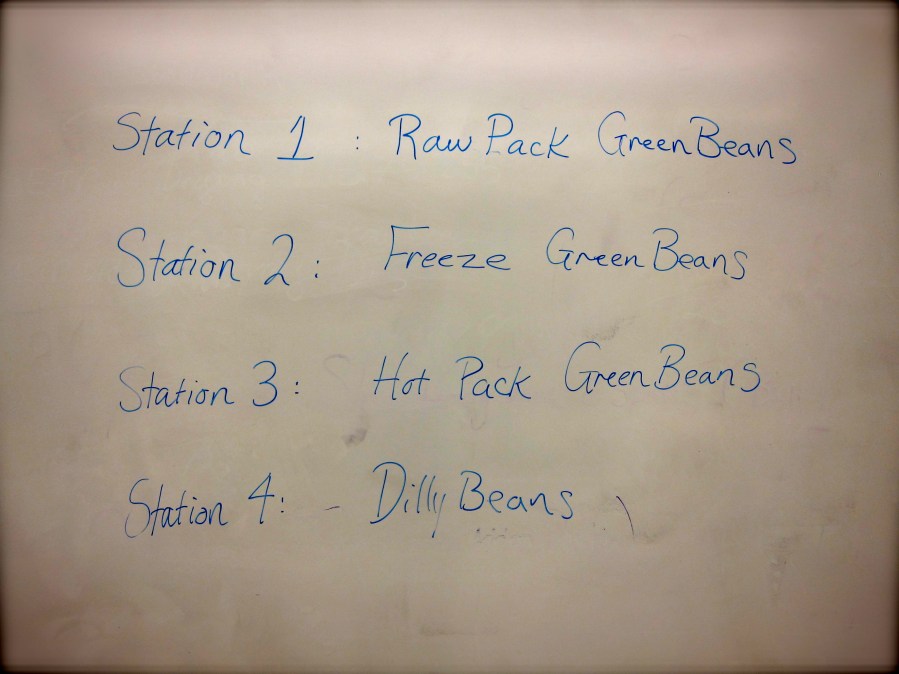 Station 1 : Raw Pack Green Beans
Station 2 : Freeze Green Beans
Station 3 : Hot Pack Green Beans
Station 4 : - Dilly Beans